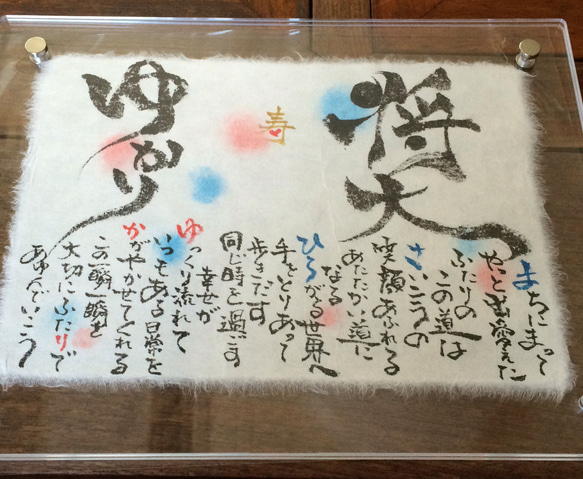 将大
寿
ゆかり
まちにまって
やっと出愛えた
ふたりの
この道は
さいこうの
笑顔あふれる
あたたかい道に
なる
ひろがる世界へ
手をとりあって
歩きだす
同じ時を過ごす
幸せが
ゆっくり流れて
いつもある日常を
かがやかせてくれる
この瞬一瞬を
大切にふたりで
あゆんでいこう